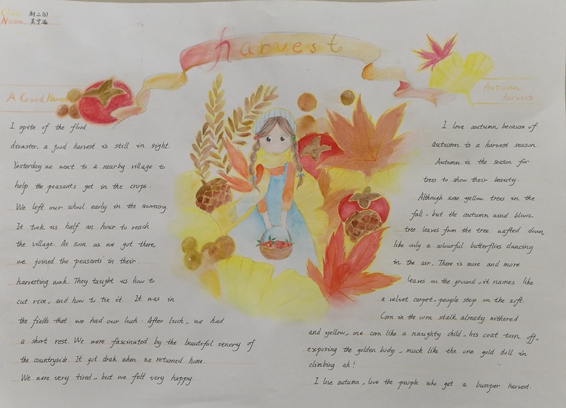 Class 初二(4)
Name
harvest
A Good Harvest
I spite of the flood
disaster. a good harvest is still in sight.
Yesterday we went to a nearby village to
help the peasants get in the crops.
We left our school early in the morning.
It took us half an hour to reach
the village. As soon as we got there,
we joined the peasants in their
harvesting work. They taught us how to
cut rice, and how to tie it. It was in
the fields that we had our lunch. After lunch, we had
a short rest. We were fascinated by the beautiful scenery of
the countryside. It got drak when we returned home.
We were very tired, but we felt very happy.
Autumn
harvest
I love autumn, because of
autumn is a harvest season.
Autumn is the season for
trees to show their beauty.
Although some yellow trees in the
fall, but the autumn wind blows.
tree leaves from the tree wafted down,
like only a colourful butterflies dancing
in the air. There is more and more
leaves on the ground, it names like
a velvet carpet, people step in the soft.
Corn in the corn stalk already withered
and yellow, one corn like a naughty child, his coat torn off,
exposing the golden body, much like the one gold doll in
climbing ah!
I love autumn, love the people who get a bumper harvest.